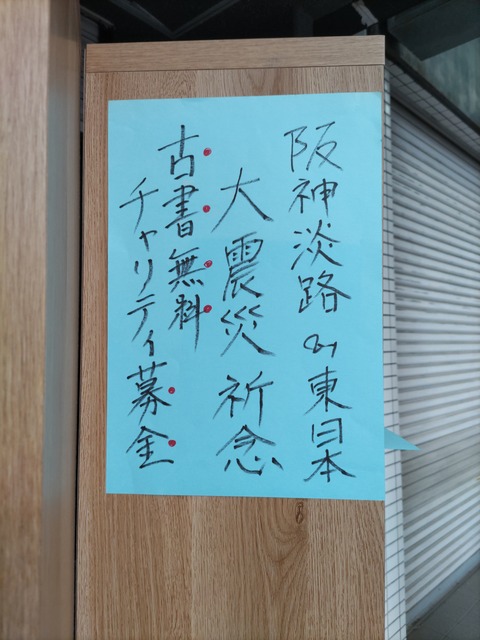 阪神淡路&東日本
大震災祈念
古書無料
チャリティ募金